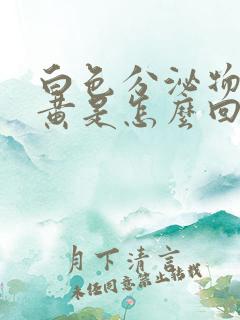 白色分泌物
黄是怎麼回
月下清言
未经同意禁止转载